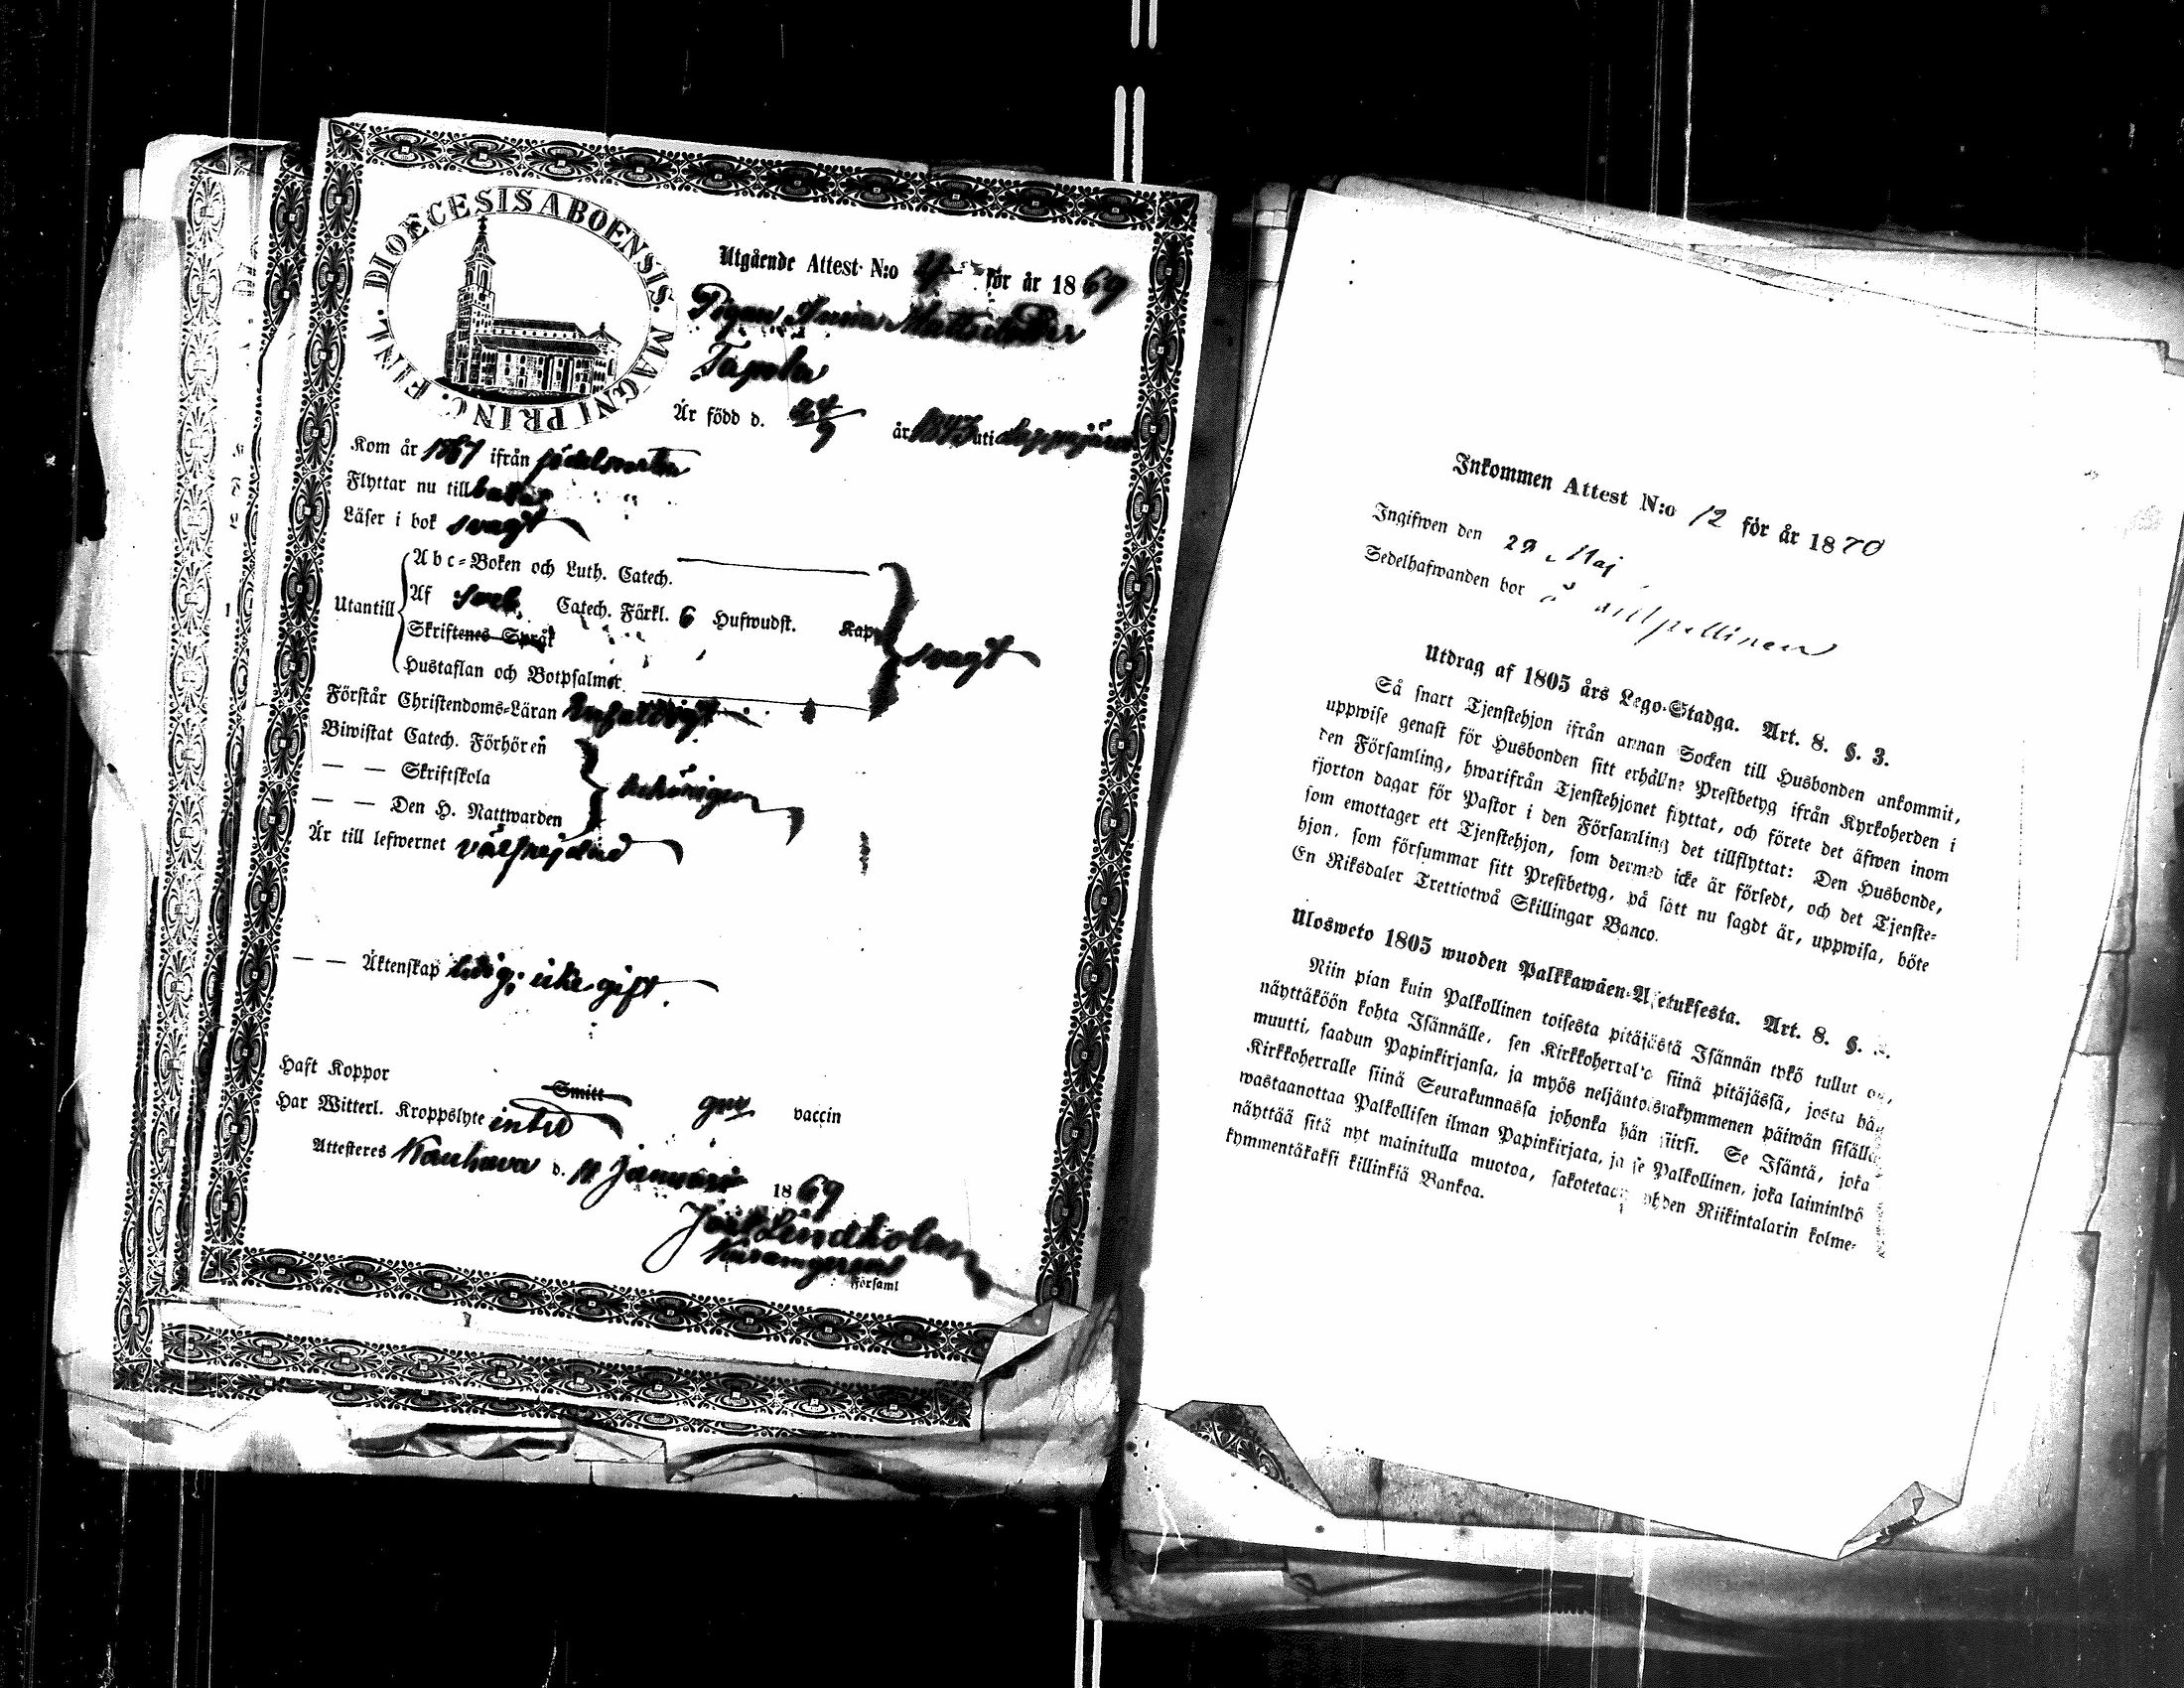 DIOECESIS ABOENSIS. MAGNI PRINC. FINL.
Utgående Attest N:o 4 för år 1869
Pigan Mattsdotter
Tapola
Är född d. 24/9 år 1843 uti Lappajärvi
Kom år 1867 ifrån födelseorten
Flyttar nu till baka
Läser i bok svagt
Utantill
Abc-Boken och Luth. Catech.
Af Sveb. Catech. Förkl. 6 Hufwudst. Kap.
Skriftenes Språk
Hustaflan och Botpsalmer
svagt
Förstår Christendoms-Läran enfaldigt
Biwistat Catech. Förhören
— — Skriftskola
— — Den H. Nattwarden
behörigen
Är till lefwernet välfrejdad
— — Äktenskap ledig; icke gift.
Haft Koppor
Smitt genom vaccin
Har Witterl. Kroppslyte intet
Attesteres Kauhava d. 11 Januari 1869
Lindholm
Församl
Inkommen Attest N:o 12 för år 1870
Ingifwen den 29 Maj
Sedelhafwanden bor å
Utdrag af 1805 års Lego-Stadga. Art. 8. §. 3.
Så snart Tjenstehjon ifrån annan Socken till Husbonden ankommit,
uppwise genast för Husbonden sitt erhållne Prestbetyg ifrån Kyrkoherden i
den Församling, hwarifrån Tjenstehjonet flyttat, och förete det äfwen inom
fjorton dagar för Pastor i den Församling det tillflyttat: Den Husbonde,
som emottager ett Tjenstehjon, som dermed icke är försedt, och det Tjenste-
hjon, som försummar sitt Prestbetyg, på sätt nu sagdt är, uppwisa, böte
En Riksdaler Trettiotwå Skillingar Banco.
Ulosweto 1805 wuoden Palkkawäen-Asetuksesta. Art. 8. §.
Niin pian kuin Palkollinen toisesta pitäjästä Isännän tykö tullut on,
näyttäköön kohta Isännälle, sen Kirkkoherralta siinä pitäjässä, josta hän
muutti, saadun Papinkirjansa, ja myös neljäntoistakymmenen päiwän sisällä
Kirkkoherralle siinä Seurakunnassa johonka hän siirsi. Se Isäntä, joka
wastaanottaa Palkollisen ilman Papinkirjata, ja se Palkollinen, joka laiminlyö
näyttää sitä nyt mainitulla muotoa, sakotetaan yhden Riikintalarin kolme-
kymmentäkaksi killinkiä Bankoa.